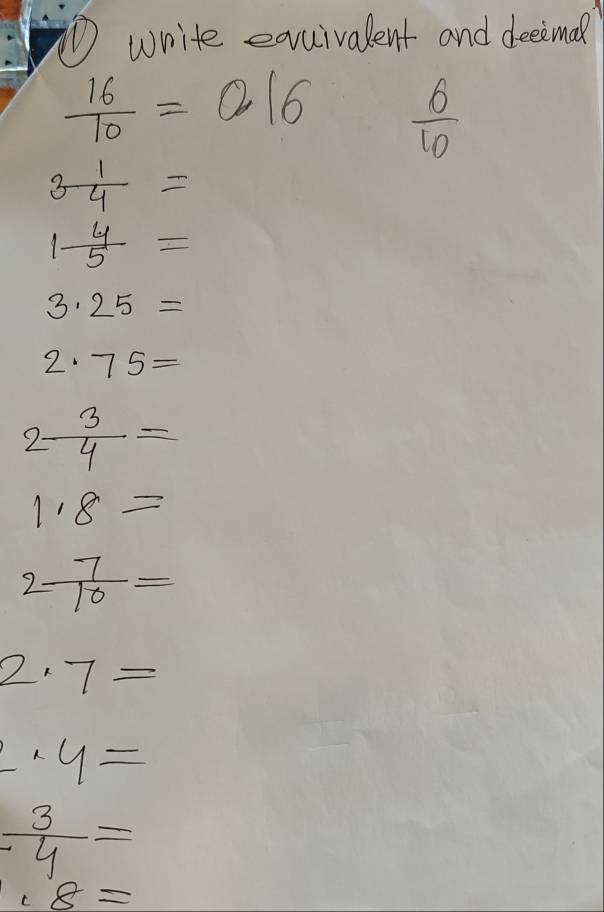 ① Write equivalent and decimal
16/10 = 0.16 6/10
3 1/4 =
1 4/5 =
3.25 =
2.75 =
2 3/4 =
1.8 =
2 7/10 =
2.7 =
.4 =
3/4 =
.8 =